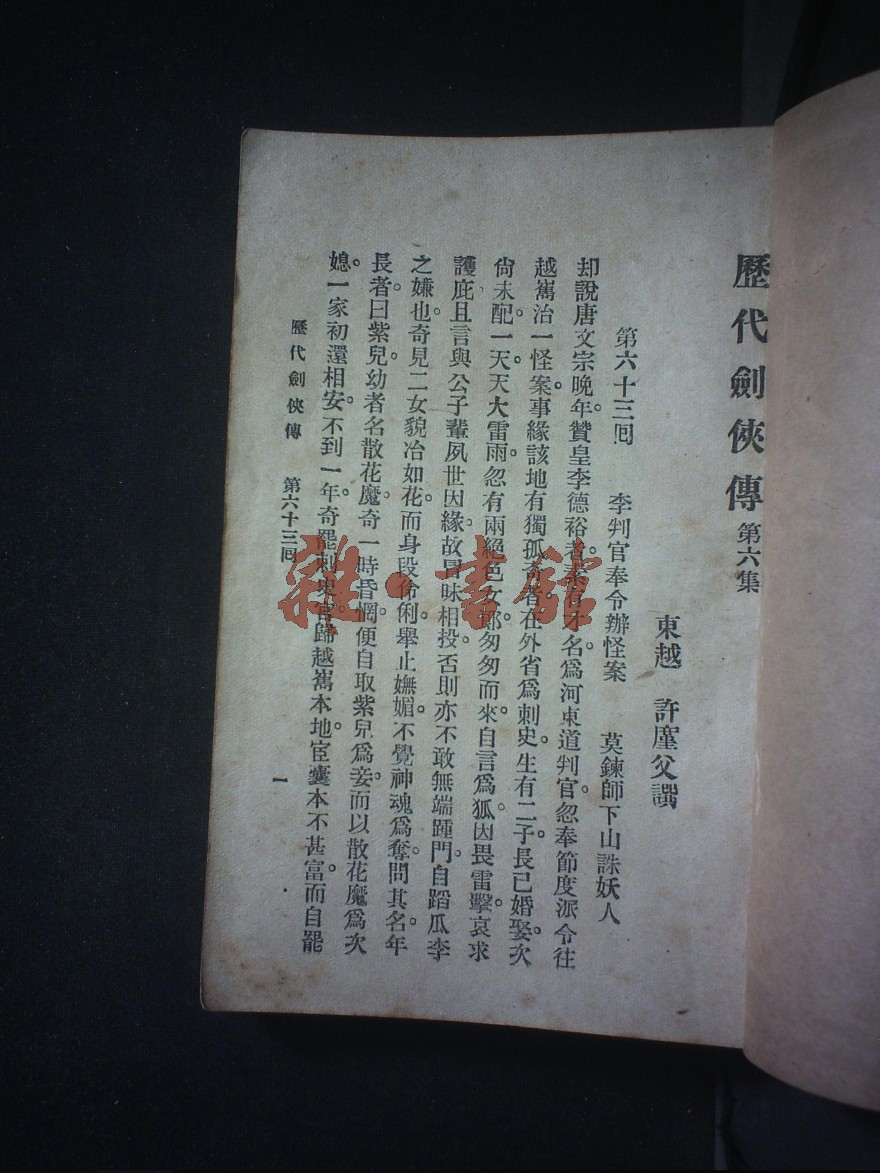 歷代劍俠傳第六集
東越 許廑父譔
第六十三囘 李判官奉令辦怪案 莫鍊師下山誅妖人
却說唐文宗晚年。贊皇李德裕者。素有才名。爲河東道判官。忽奉節度派令往
越嶲治一怪案。事緣該地有獨孤奇者。在外省爲刺史。生有二子。長已婚娶。次
尙未配。一天。天大雷雨。忽有兩絕色女郎。匆匆而來。自言爲狐。因畏雷擊。哀求
護庇。且言與公子輩夙世因緣。故冒昧相投。否則亦不敢無端踵門。自蹈瓜李
之嫌也。奇見二女貌冶如花。而身段伶俐。舉止嫵媚。不覺神魂爲奪。問其名。年
長者曰紫兒。幼者名散花魔。奇一時昏惘。便自取紫兒爲妾。而以散花魔爲次
媳。一家初還相安。不到一年。奇罷刺史官。歸越嶲本地。宦囊本不甚富。而自罷
歷代劍俠傳 第六十三囘
一
雜·書館